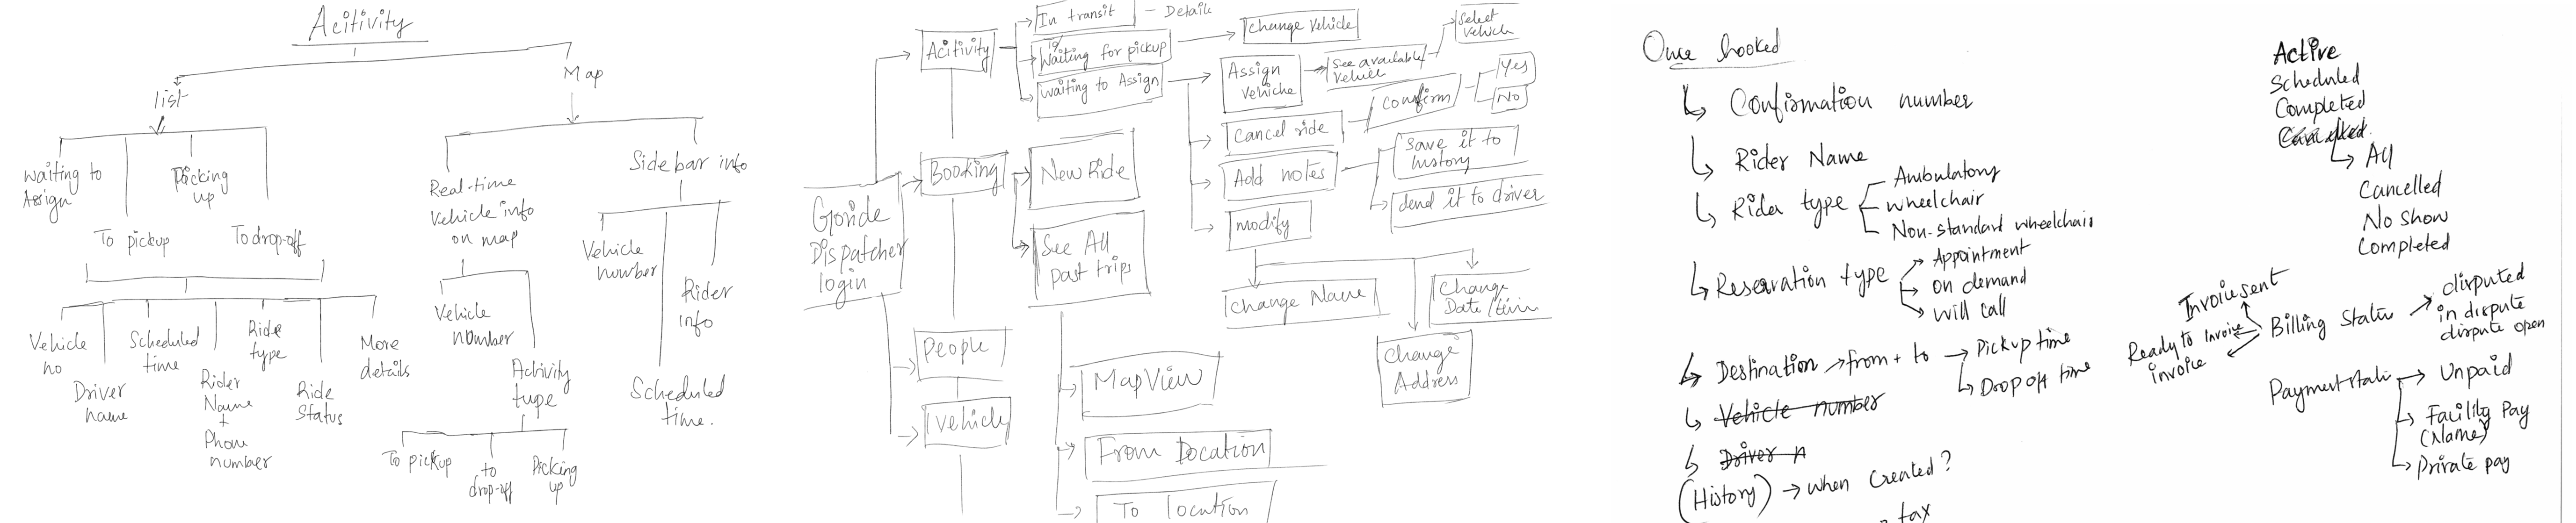 Acitivity
list
Map
waiting to
Assign
Picking
up
To pickup
To drop-off
Vehicle
no
Driver
name
Scheduled
time
Rider
Name
+
Phone
number
Ride
type
Ride
Status
More
details
Real-time
Vehicle info
on map
Side bar info
Vehicle
number
Activity
type
To pickup
to
drop-off
Picking
up
Vehicle
number
Rider
info
Scheduled
time.
Goride
Dispatcher
login
Acitivity
In transit - Details
Waiting for pickup
Change Vehicle
Waiting to Assign
Assign
Vehicle
See available
Vehicle
Select
Vehicle
Cancel ride
Confirm
Yes
No
Add notes
Save it to
history
Send it to driver
modify
Change Name
Change
Address
Change
Date/time
Booking
New Ride
See All
past trips
Map View
From Location
To location
People
Vehicle
Once booked
Confirmation number
Rider Name
Rider type
Ambulatory
wheelchair
Non-standard wheelchair
Reservation type
Appointment
on demand
will call
Destination → from + to → Pickup time
Drop off time
Vehicle number
Driver n
(History) → when Created?
tax
Active
Scheduled
Completed
All
Cancelled
No show
Completed
Invoice sent
Ready to Invoice
invoice
Billing Status
disputed
in dispute
dispute open
Payment stati
Unpaid
Facility Pay
(Name)
Private pay